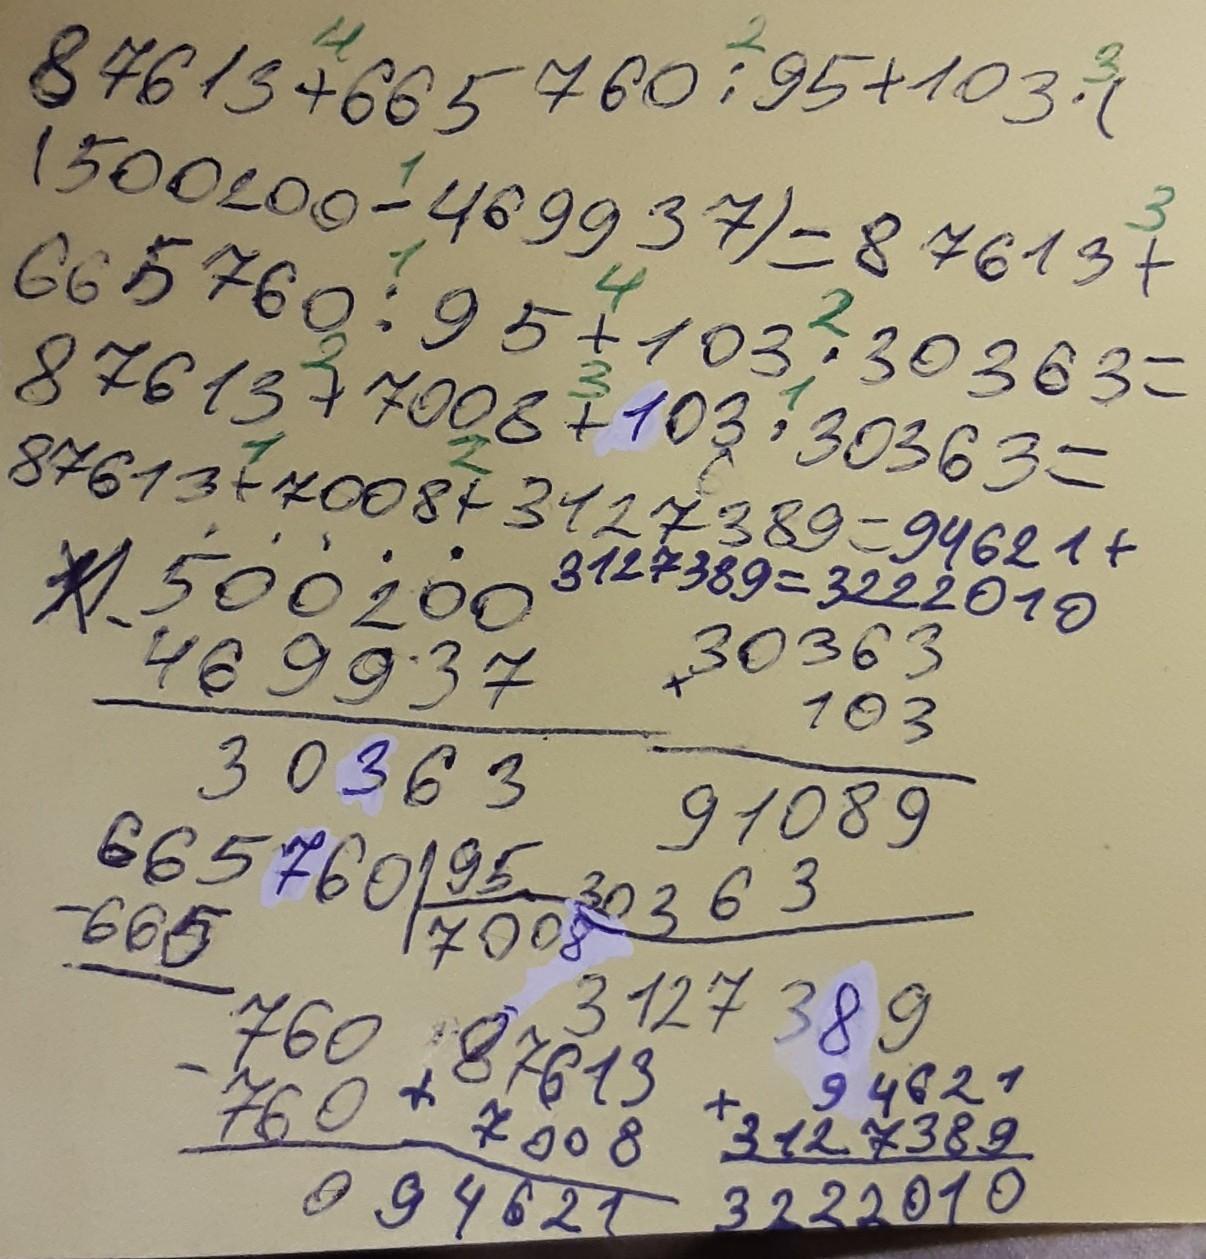 4 2 3
87613+665 760:95+103·(
1
(500200-469937)=87613+
3
1 4 2
665760:95+103·30363=
2 3 1
87613+7008+103·30363=
1 2
87613+7008+3127389=94621+
3127389=3222010
-500200
469937
30363
×30363
103
91089
30363
3127389
665760|95
-665 7008
760
-760
0
87613
+7008
94621
+94621
3127389
3222010